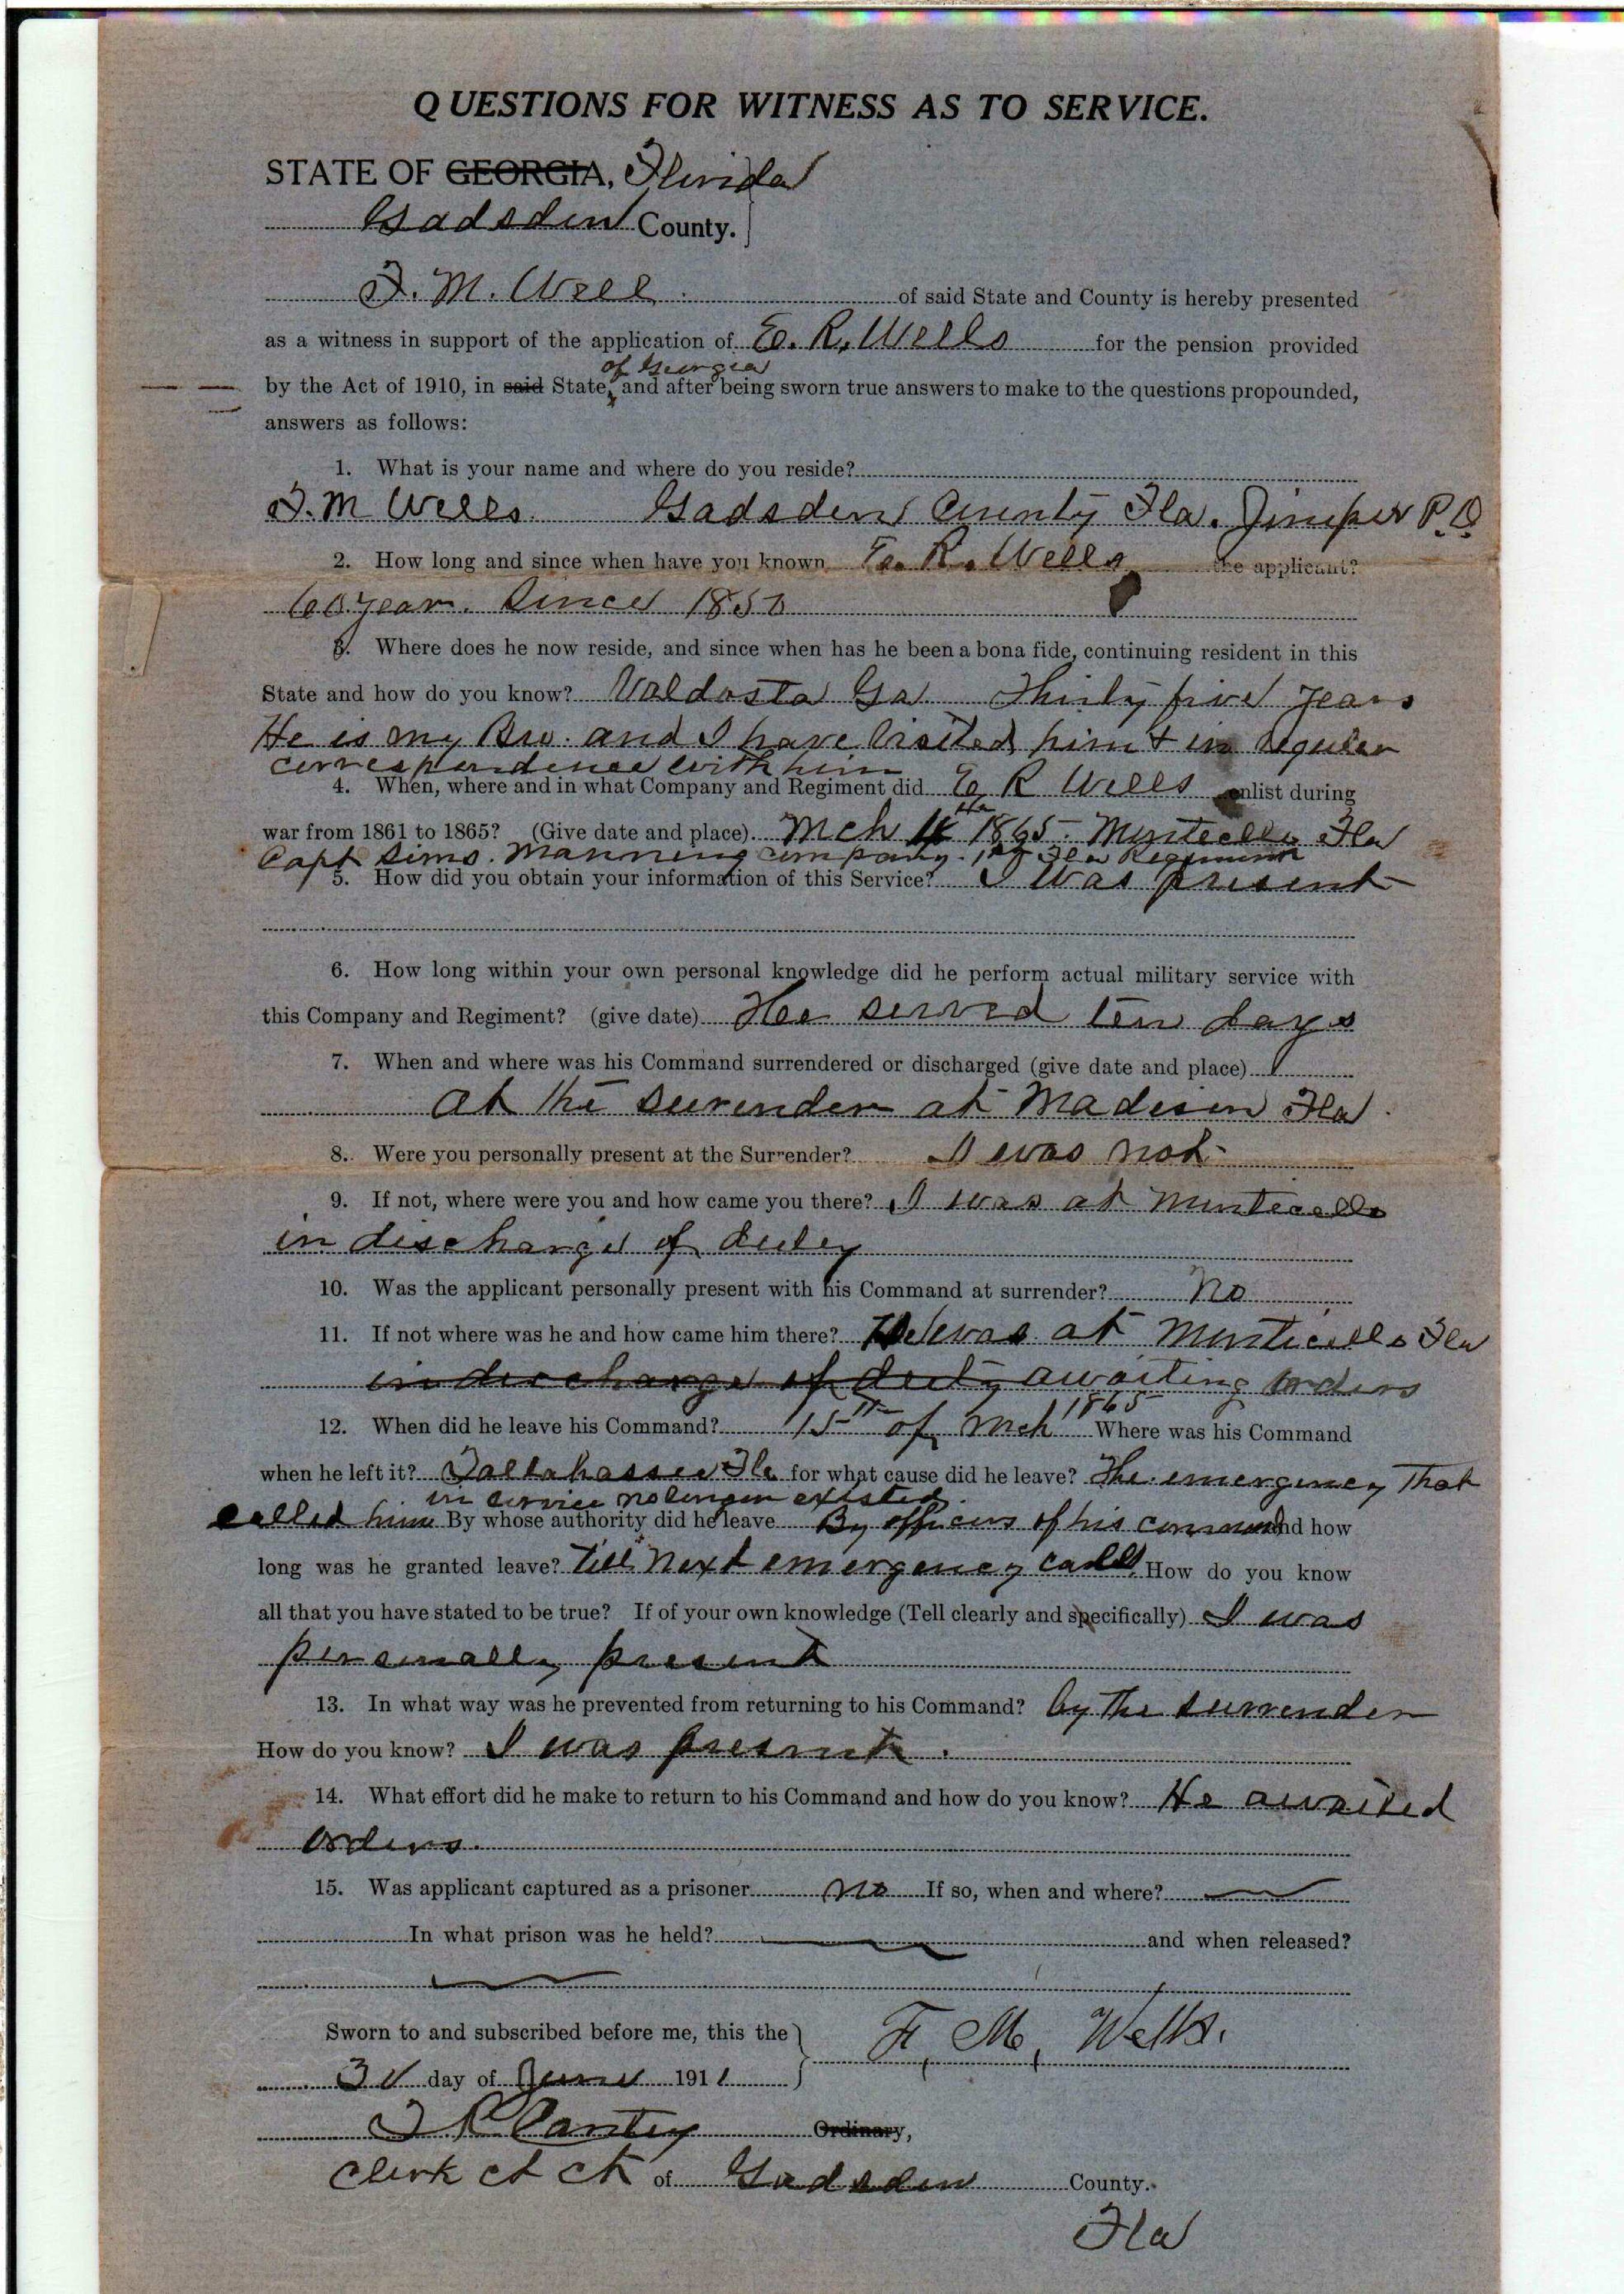 QUESTIONS FOR WITNESS AS TO SERVICE.
STATE OF GEORGIA, Florida
Gadsden County.
F. M. Well of said State and County is hereby presented
as a witness in support of the application of E. R. Wells for the pension provided
of Georgia
by the Act of 1910, in said State, and after being sworn true answers to make to the questions propounded,
answers as follows:
1. What is your name and where do you reside?
F. M Wells. Gadsden County Fla. Juniper P.O.
2. How long and since when have you known E. R. Wells the applicant?
60 year. Since 1850
3. Where does he now reside, and since when has he been a bona fide, continuing resident in this
State and how do you know? Valdosta Ga Thirty five years
He is my Bro. and I have visited him & in regular
correspondence with him
4. When, where and in what Company and Regiment did E R Wells enlist during
war from 1861 to 1865? (Give date and place) Mch 1865. Monticello Fla
Capt Sims. Manning company. 1st Fla Regiment
5. How did you obtain your information of this Service? I was present
6. How long within your own personal knowledge did he perform actual military service with
this Company and Regiment? (give date) Hee served ten days
7. When and where was his Command surrendered or discharged (give date and place)
at the surender at Madison Fla.
8. Were you personally present at the Surrender? I was not
9. If not, where were you and how came you there? I was at Monticello
in discharge of duty
10. Was the applicant personally present with his Command at surrender? No
11. If not where was he and how came him there? He was at Monticello Fla
in discharge of duty awaiting orders
12. When did he leave his Command? 15th of Mch 1865 Where was his Command
when he left it? Tallahassee Fla for what cause did he leave? The emergency That
in service no longer existed.
called him By whose authority did he leave By officers of his command and how
long was he granted leave? till next emergency call. How do you know
all that you have stated to be true? If of your own knowledge (Tell clearly and specifically) I was
personally present
13. In what way was he prevented from returning to his Command? by the surrender
How do you know? I was present.
14. What effort did he make to return to his Command and how do you know? He awaited
orders.
15. Was applicant captured as a prisoner no If so, when and where?
In what prison was he held? and when released?
Sworn to and subscribed before me, this the F. M. Wells.
day of June 1911
Ordinary,
Clerk Ct Ct of Gadsden County.
Fla